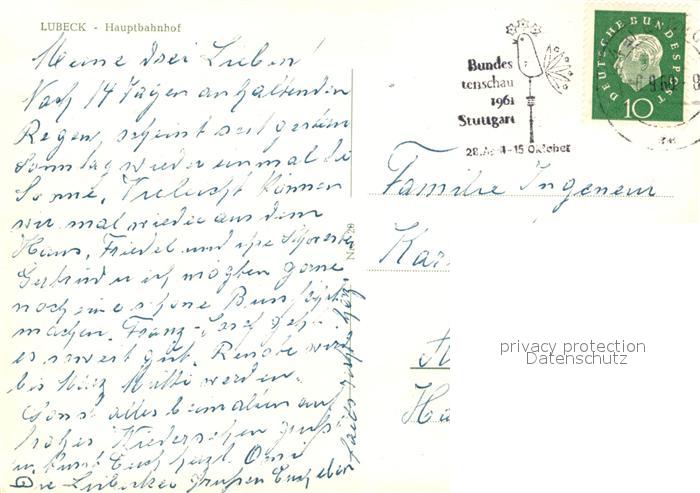 LÜBECK - Hauptbahnhof
Meine drei Lieben!
Nach 14 Tagen anhaltenden
Regen, scheint seit gestern
Sonntag wieder einmal die
Sonne. Vieleicht können
wir mal wieder aus dem
Haus, Friedel und ihre Schwester
Gertrud u ich mögten gerne
noch eine schöne Busfahrt
machen. Franz-Josef geht
es soweit gut. Renate wird
bis März Mutti werden.
Sonst alles beim alten auf
frohes Wiedersehen grüßt
u. küsst Euch herzl. Omi
Die Lübecker grüßen Euch eben
falls recht herz.
Nr. 20
Bundes
tenschau
1961
Stuttgart
28. 4-15 Oktober
DEUTSCHE BUNDESPOST
10
9.60
Familie Ingeneur
Kar
Hü
privacy protection
Datenschutz